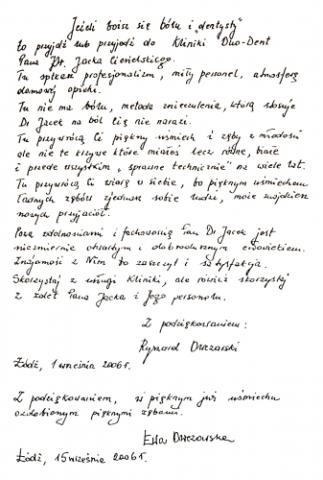 Jeśli boisz się bólu i "dentysty"
to przyjdź lub przyjedź do Kliniki Duo-Dent
Pana Dr. Jacka Ciesielskiego.
Tu spotkasz profesjonalizm, miły personel, atmosferę
domowej opieki.
Tu nie ma bólu, metoda znieczulenia, którą stosuje
Dr Jacek na ból Cię nie narazi.
Tu przywrócą Ci piękny uśmiech i zęby z młodości
ale nie te krzywe które miałeś lecz równe, białe
i przede wszystkim "sprawne technicznie" na wiele lat.
Tu przywrócą Ci wiarę w siebie, bo pięknym uśmiechem
ładnych zębów zjednasz sobie ludzi, może znajdziesz
nowych przyjaciół.
Poza zdolnościami i fachowością Pan Dr Jacek jest
niezmiernie otwartym i dobrodusznym człowiekiem.
Znajomość z Nim to zaszczyt i satysfakcja.
Skorzystaj z usługi Kliniki, ale również skorzystaj
z zalet Pana Jacka i Jego personelu.
Z podziękowaniem:
Ryszard
Łódź, 1 września 2006 r.
Z podziękowaniem, z pięknym już uśmiechem
ozdobionym pięknymi zębami.
Ewa
Łódź, 15 wrzesień 2006 r.